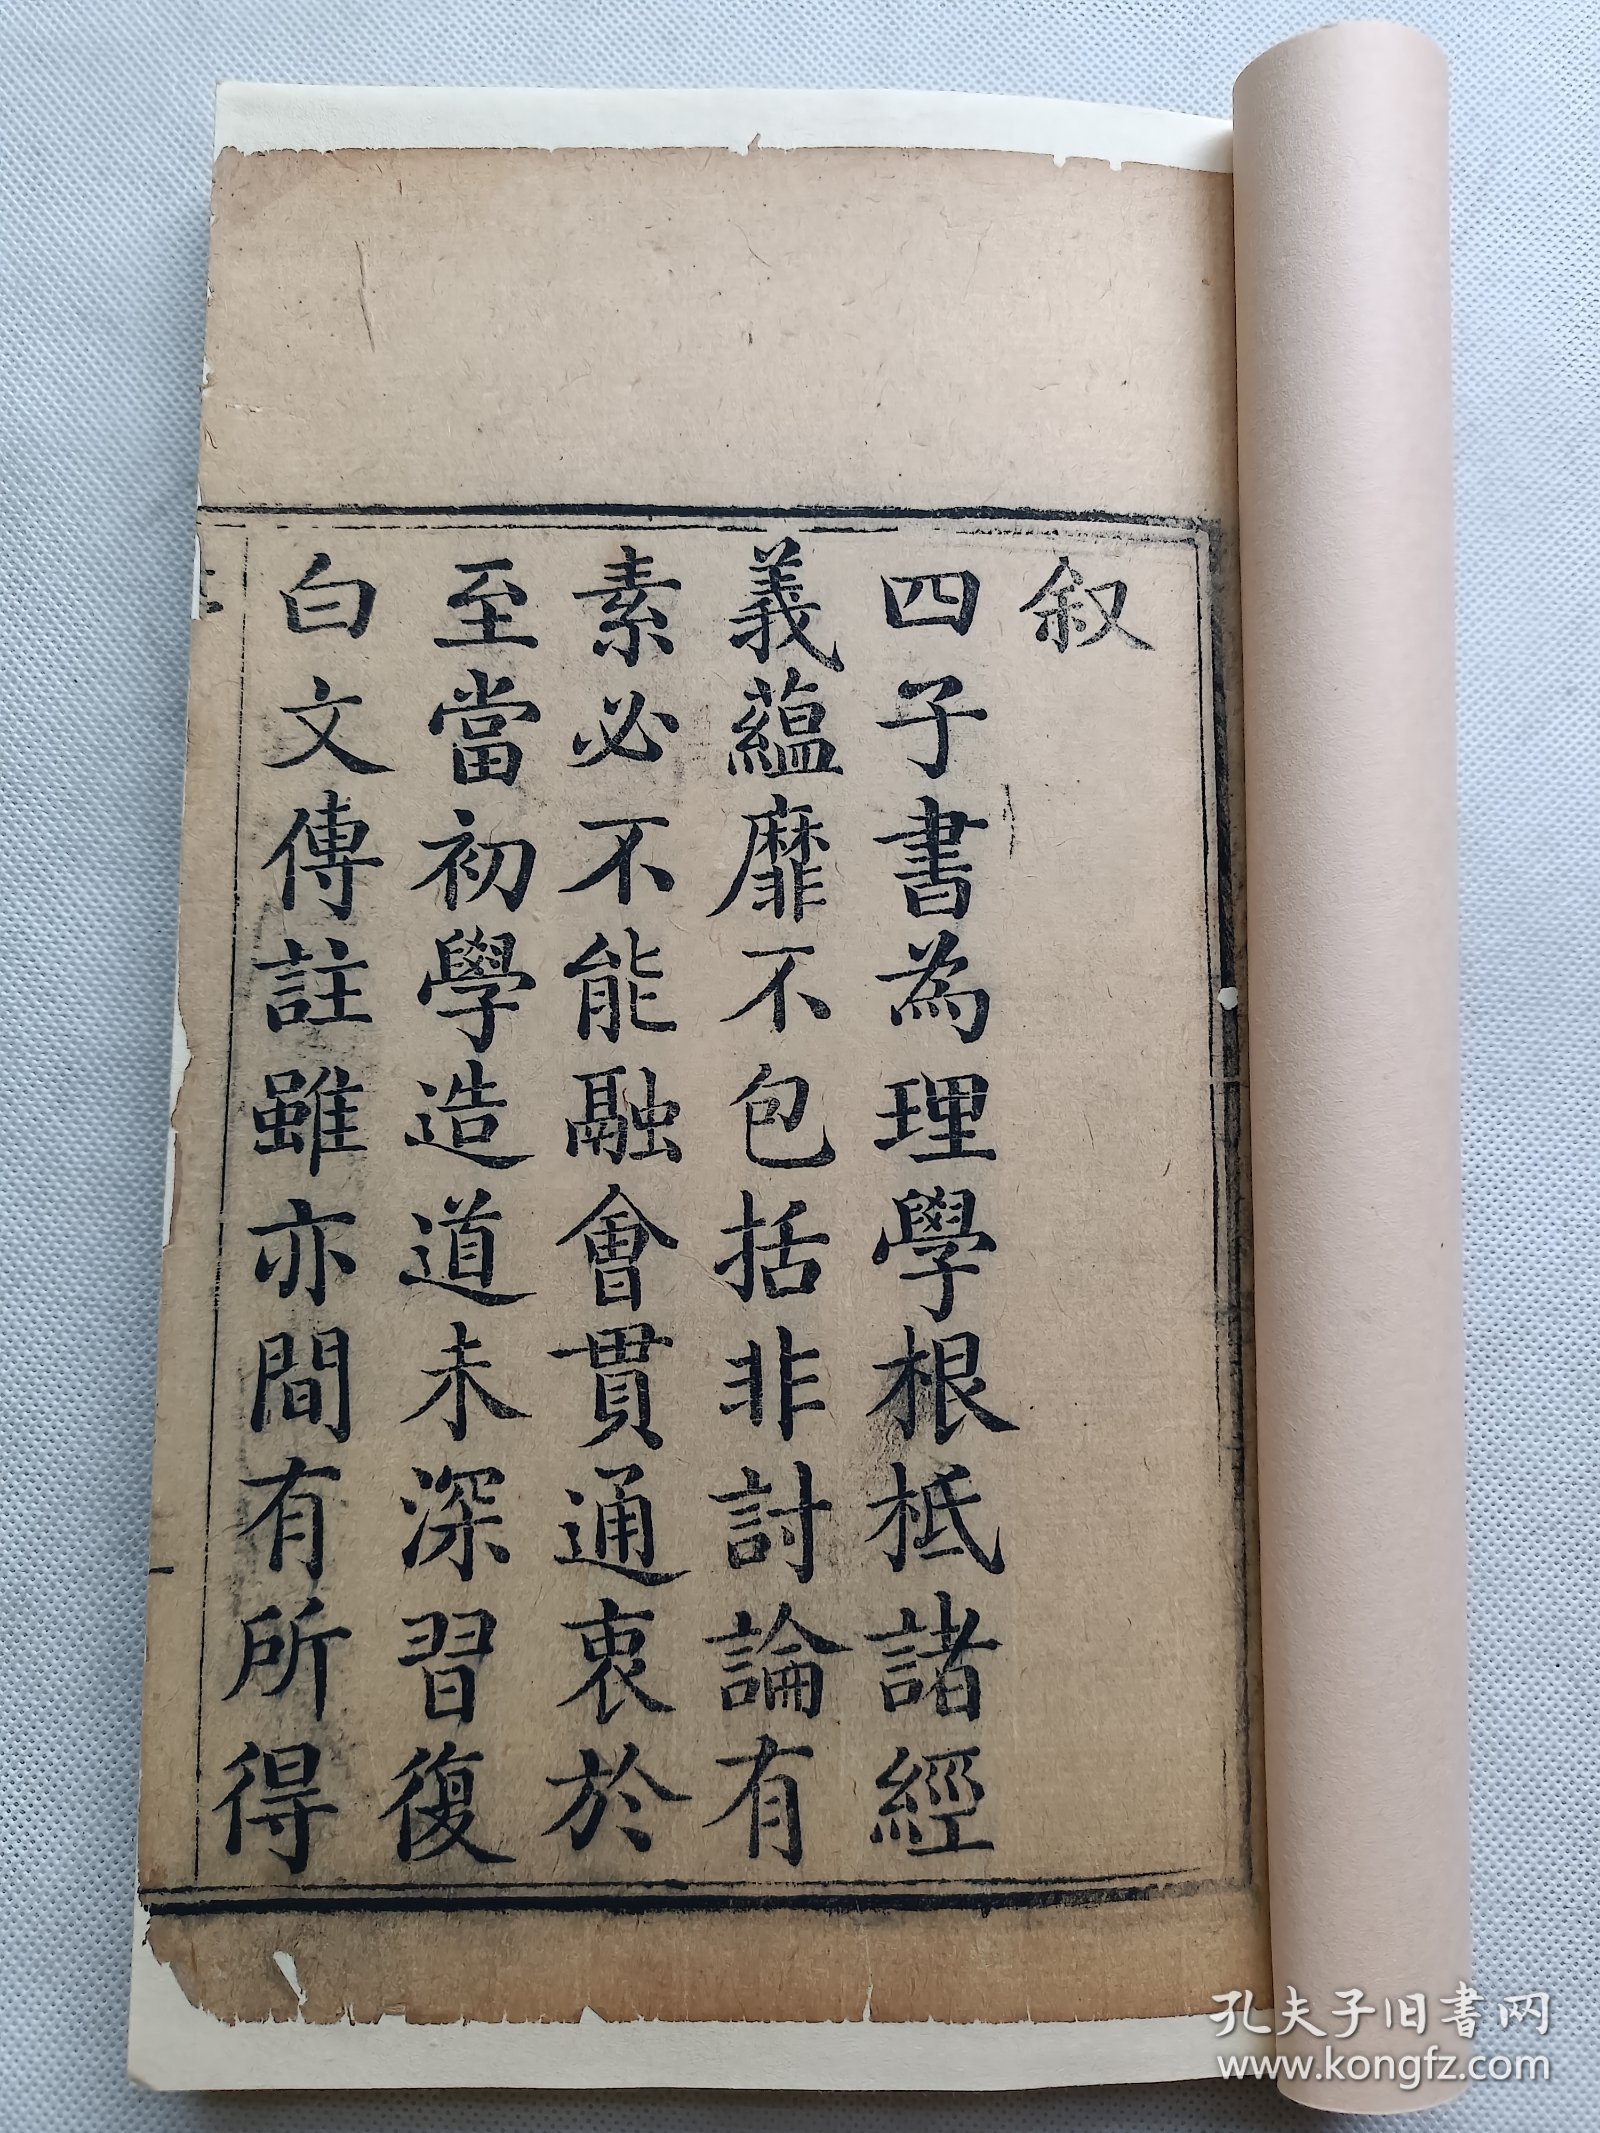 叙
四子書為理學根柢諸經
義蘊靡不包括非討論有
素必不能融會貫通衷於
至當初學造道未深習復
白文傳註雖亦間有所得
孔夫子旧书网
www.kongfz.com